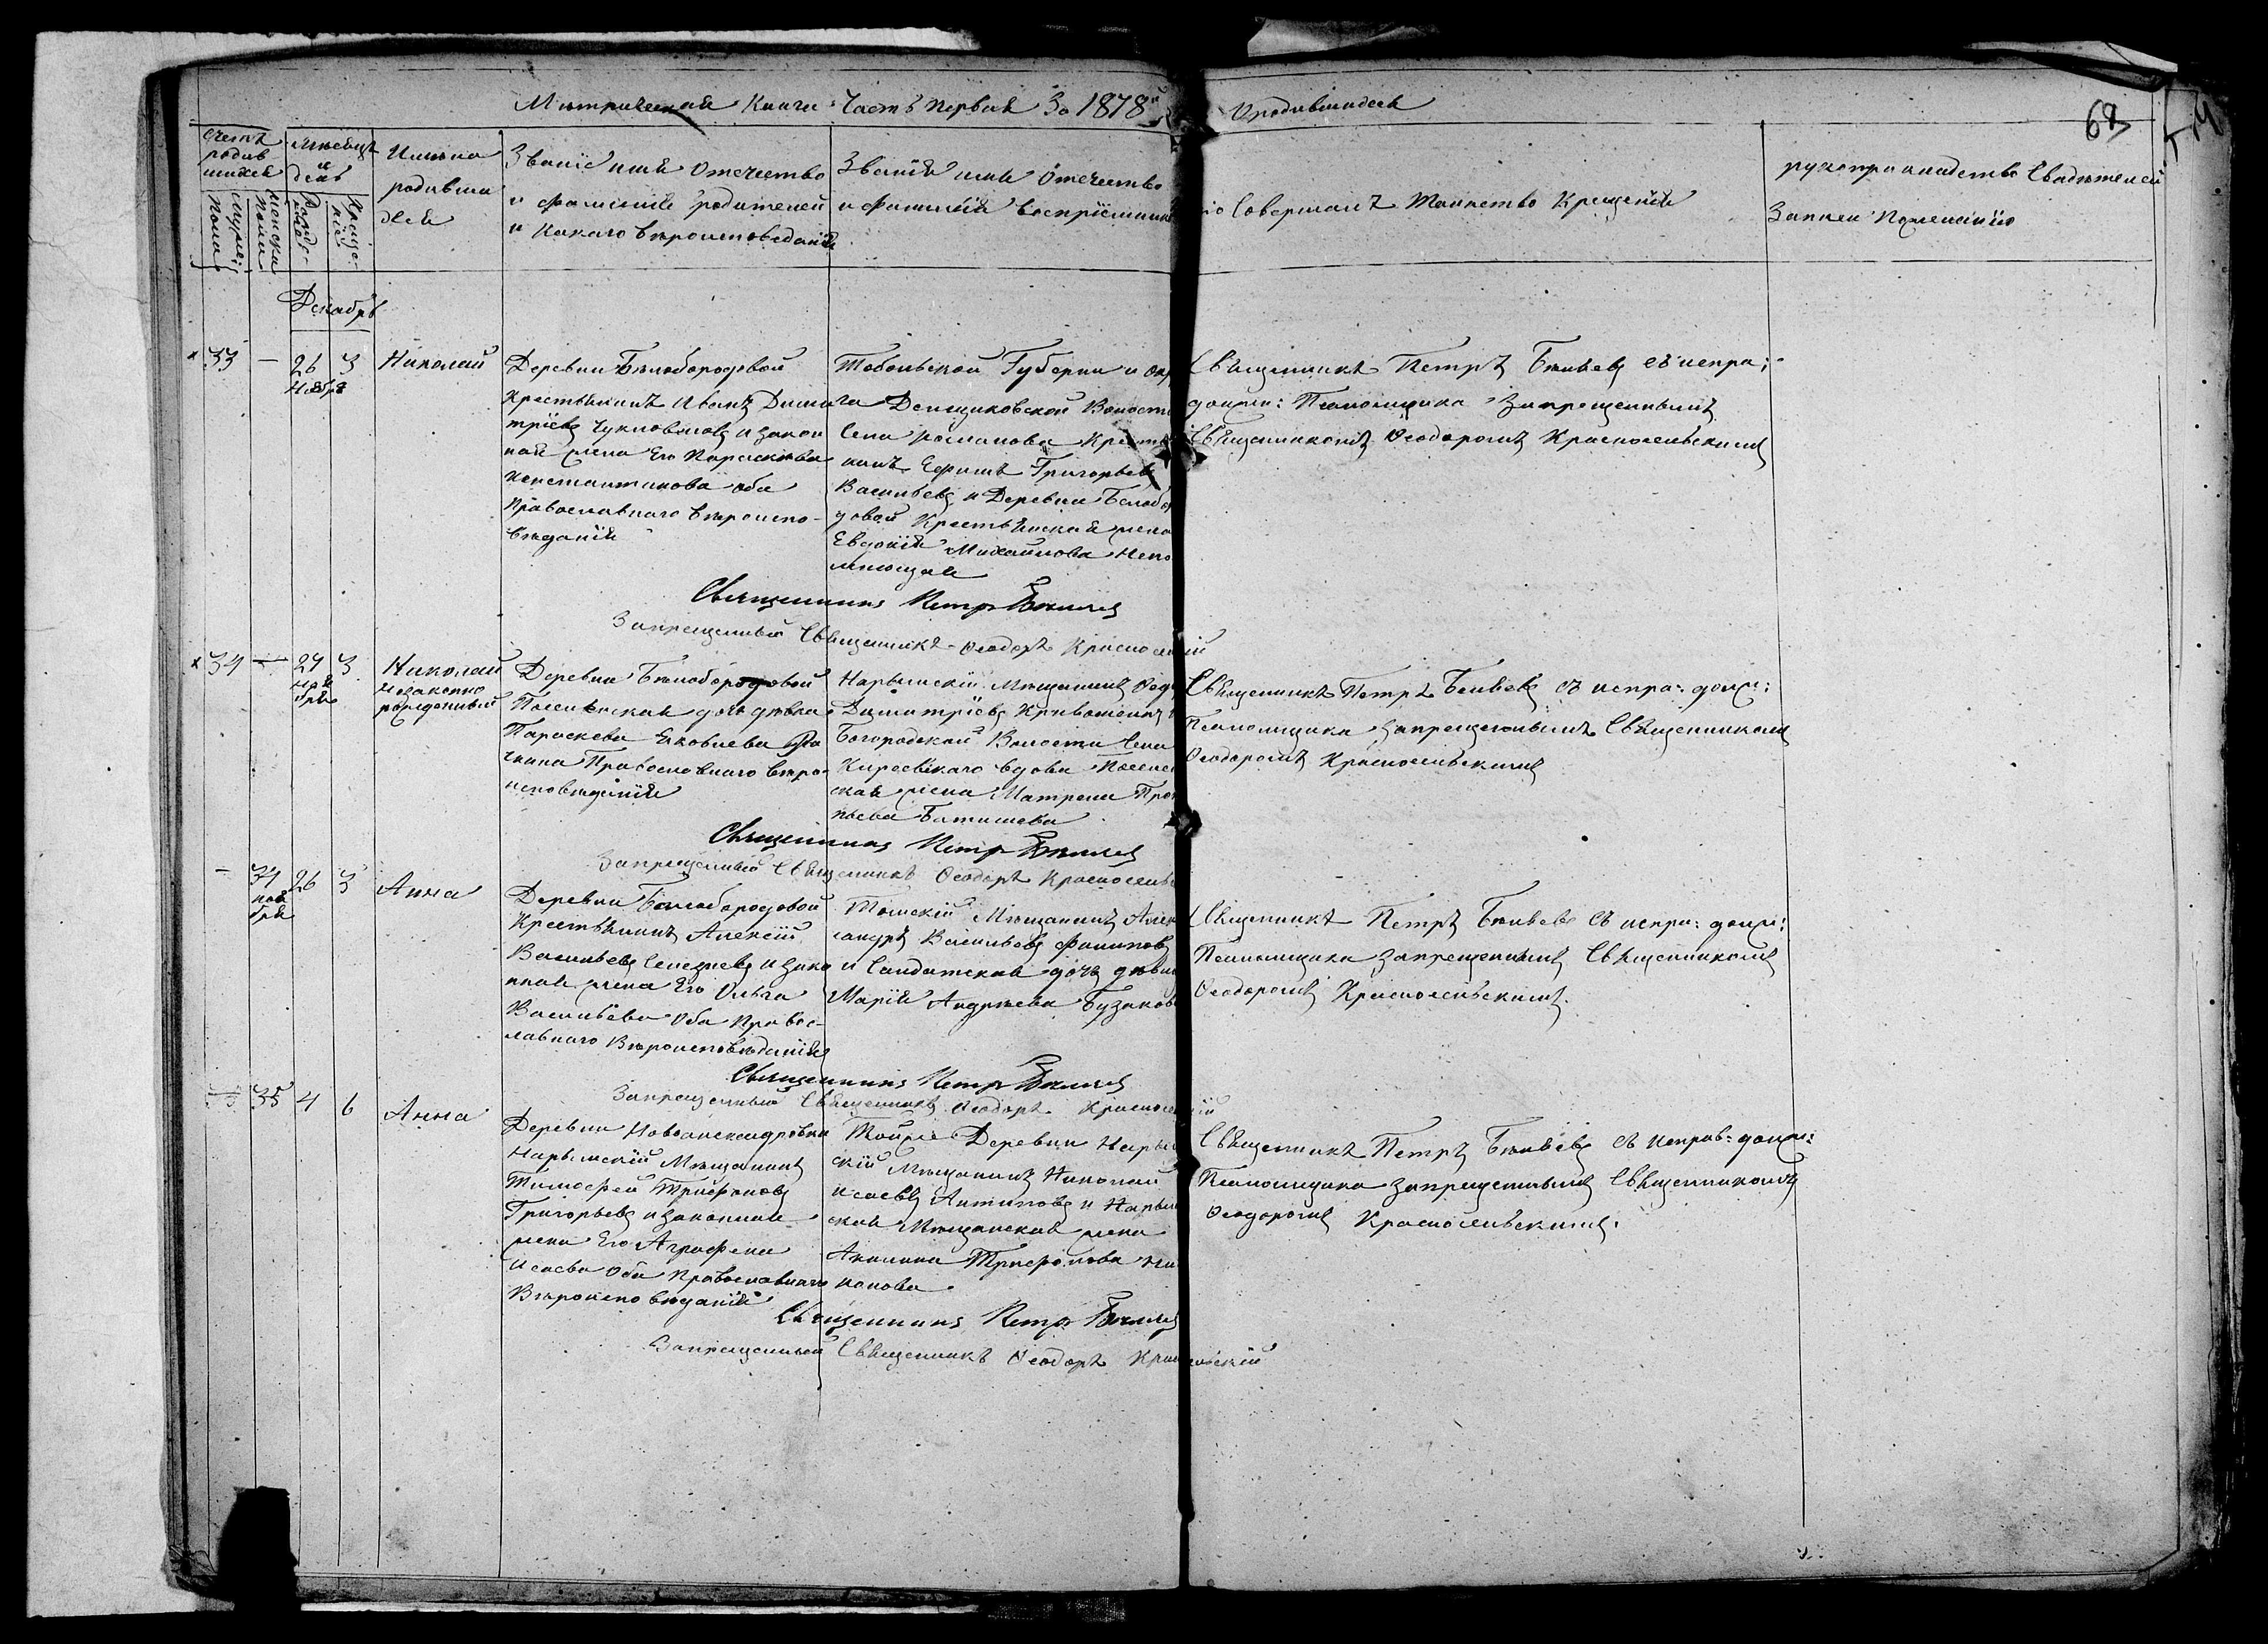 Метрической Книги Часть Первая За 1878й О родившихся
68
Счетъ родившихся
Мужеска Пола
Женска Пола
Мѣсяцъ и день
Рожденіе
Крещеніе
Имена родившихся
Званіе имя Отчество
и фамилія родителей
и какого вѣроисповѣданія
Званія имя Отчество
и фамилія воспріемник
то Совершалъ Таинство Крещенія
рукоприкладство Свидѣтелей
Записи По желанію
Декабрь
33 — 26 Ноября 3 Николай
Деревни Бѣлобородовой
Крестьянинъ Иванъ Дими
тріевъ и закон
ная жена Его Параскѣва
Константинова оба
Православнаго вѣроиспо-
вѣданія
Тобольской Губерніи и окр
га Денщиковской Волости
Села Романова Кресть
нинъ Ефимъ Григорьевъ
Васильевъ и Деревни Белобор
довой Крестьянская жена
Евдокія Михайлова Непо
мнющая
Священникъ Петръ Бѣляевъ съ испра:
должн: Псаломщика Запрещеннымъ
Священникомъ Ѳеодоромъ Красносельскимъ
Священникъ Петръ Бѣляевъ
Запрещенный Священникъ Ѳеодоръ Красносельскій
34 — 24 Ноября 3 Николай незаконно рожденный
Деревни Бѣлобородовой
Поселенская дочь дѣвка
Параскева Яковлева
Православнаго вѣро-
исповѣданія
Нарымскій Мѣщанинъ Ѳед
Димитріевъ Кривошеинъ и
Богородской Волости Села
Киреевскаго вдова Поселен
ская жена Матрена Про
пьева Батищева
Священникъ Петръ Беляевъ съ испра: долж:
Псаломщика запрещеннымъ Священникомъ
Ѳеодоромъ Красносельскимъ
Священникъ Петръ Бѣляевъ
Запрещенный Священникъ Ѳеодоръ Красносельс
— 34 ноября 26 3 Анна
Деревни Белобородовой
Крестьянинъ Алексій
Васильевъ Селезневъ и зако
нная жена Его Ольга
Васильева Оба Правос-
лавнаго Вѣроисповѣданія
Томскій Мѣщанинъ Алек
сандръ Васильевъ Филиповъ
и Солдатская дочь дѣви
Марія Андреева Бузаков
Священникъ Петръ Бѣляевъ съ испра: долж:
Псаломщика запрещеннымъ Священникомъ
Ѳеодоромъ Красносельскимъ.
Священникъ Петръ Бѣляевъ
Запрещенный Священникъ Ѳеодоръ Красносельскій
35 4 6 Анна
Деревни Новоалександровки
Нарымскій Мѣщанинъ
Тимофей Трифоновъ
Григорьевъ и законная
жена Его Аграфена
Исаева Оба Православнаго
Вѣроисповѣданія
Тойже Деревни Нарым
скій Мѣщанинъ Николай
Исаевъ Антиповъ и Нарым
ская Мѣщанская жена
Акилина Трифонова Ни
конова
Священникъ Петръ Бѣляевъ съ исправ: долж:
Псаломщика запрещеннымъ Священникомъ
Ѳеодоромъ Красносельскимъ.
Священникъ Петръ Бѣляевъ
Запрещенный Священникъ Ѳеодоръ Красносельскій